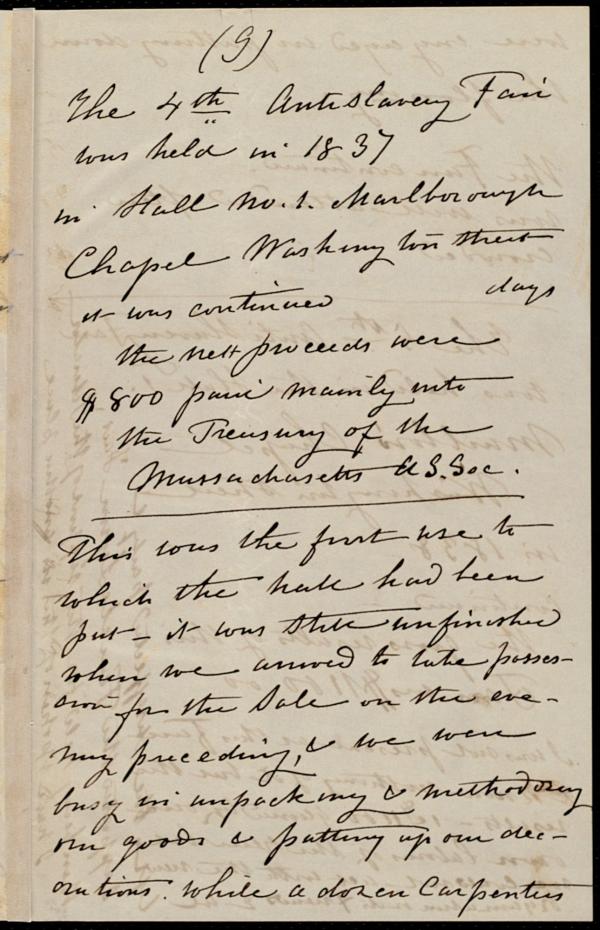 (9)
The 4th Antislavery Fair
was held in 1837
in Hall No. 1. Marlborough
Chapel Washington street
it was continued days
the nett proceeds were
$800 paid mainly into
the Treasury of the
Massachusetts A.S. Soc.
This was the first use to
which the hall had been
put - it was still unfinished
when we arrived to take posses-
sion for the Sale on the eve-
ning preceding, & we were
busy in unpacking & methodizing
our goods & putting up our dec-
orations. while a dozen Carpenters